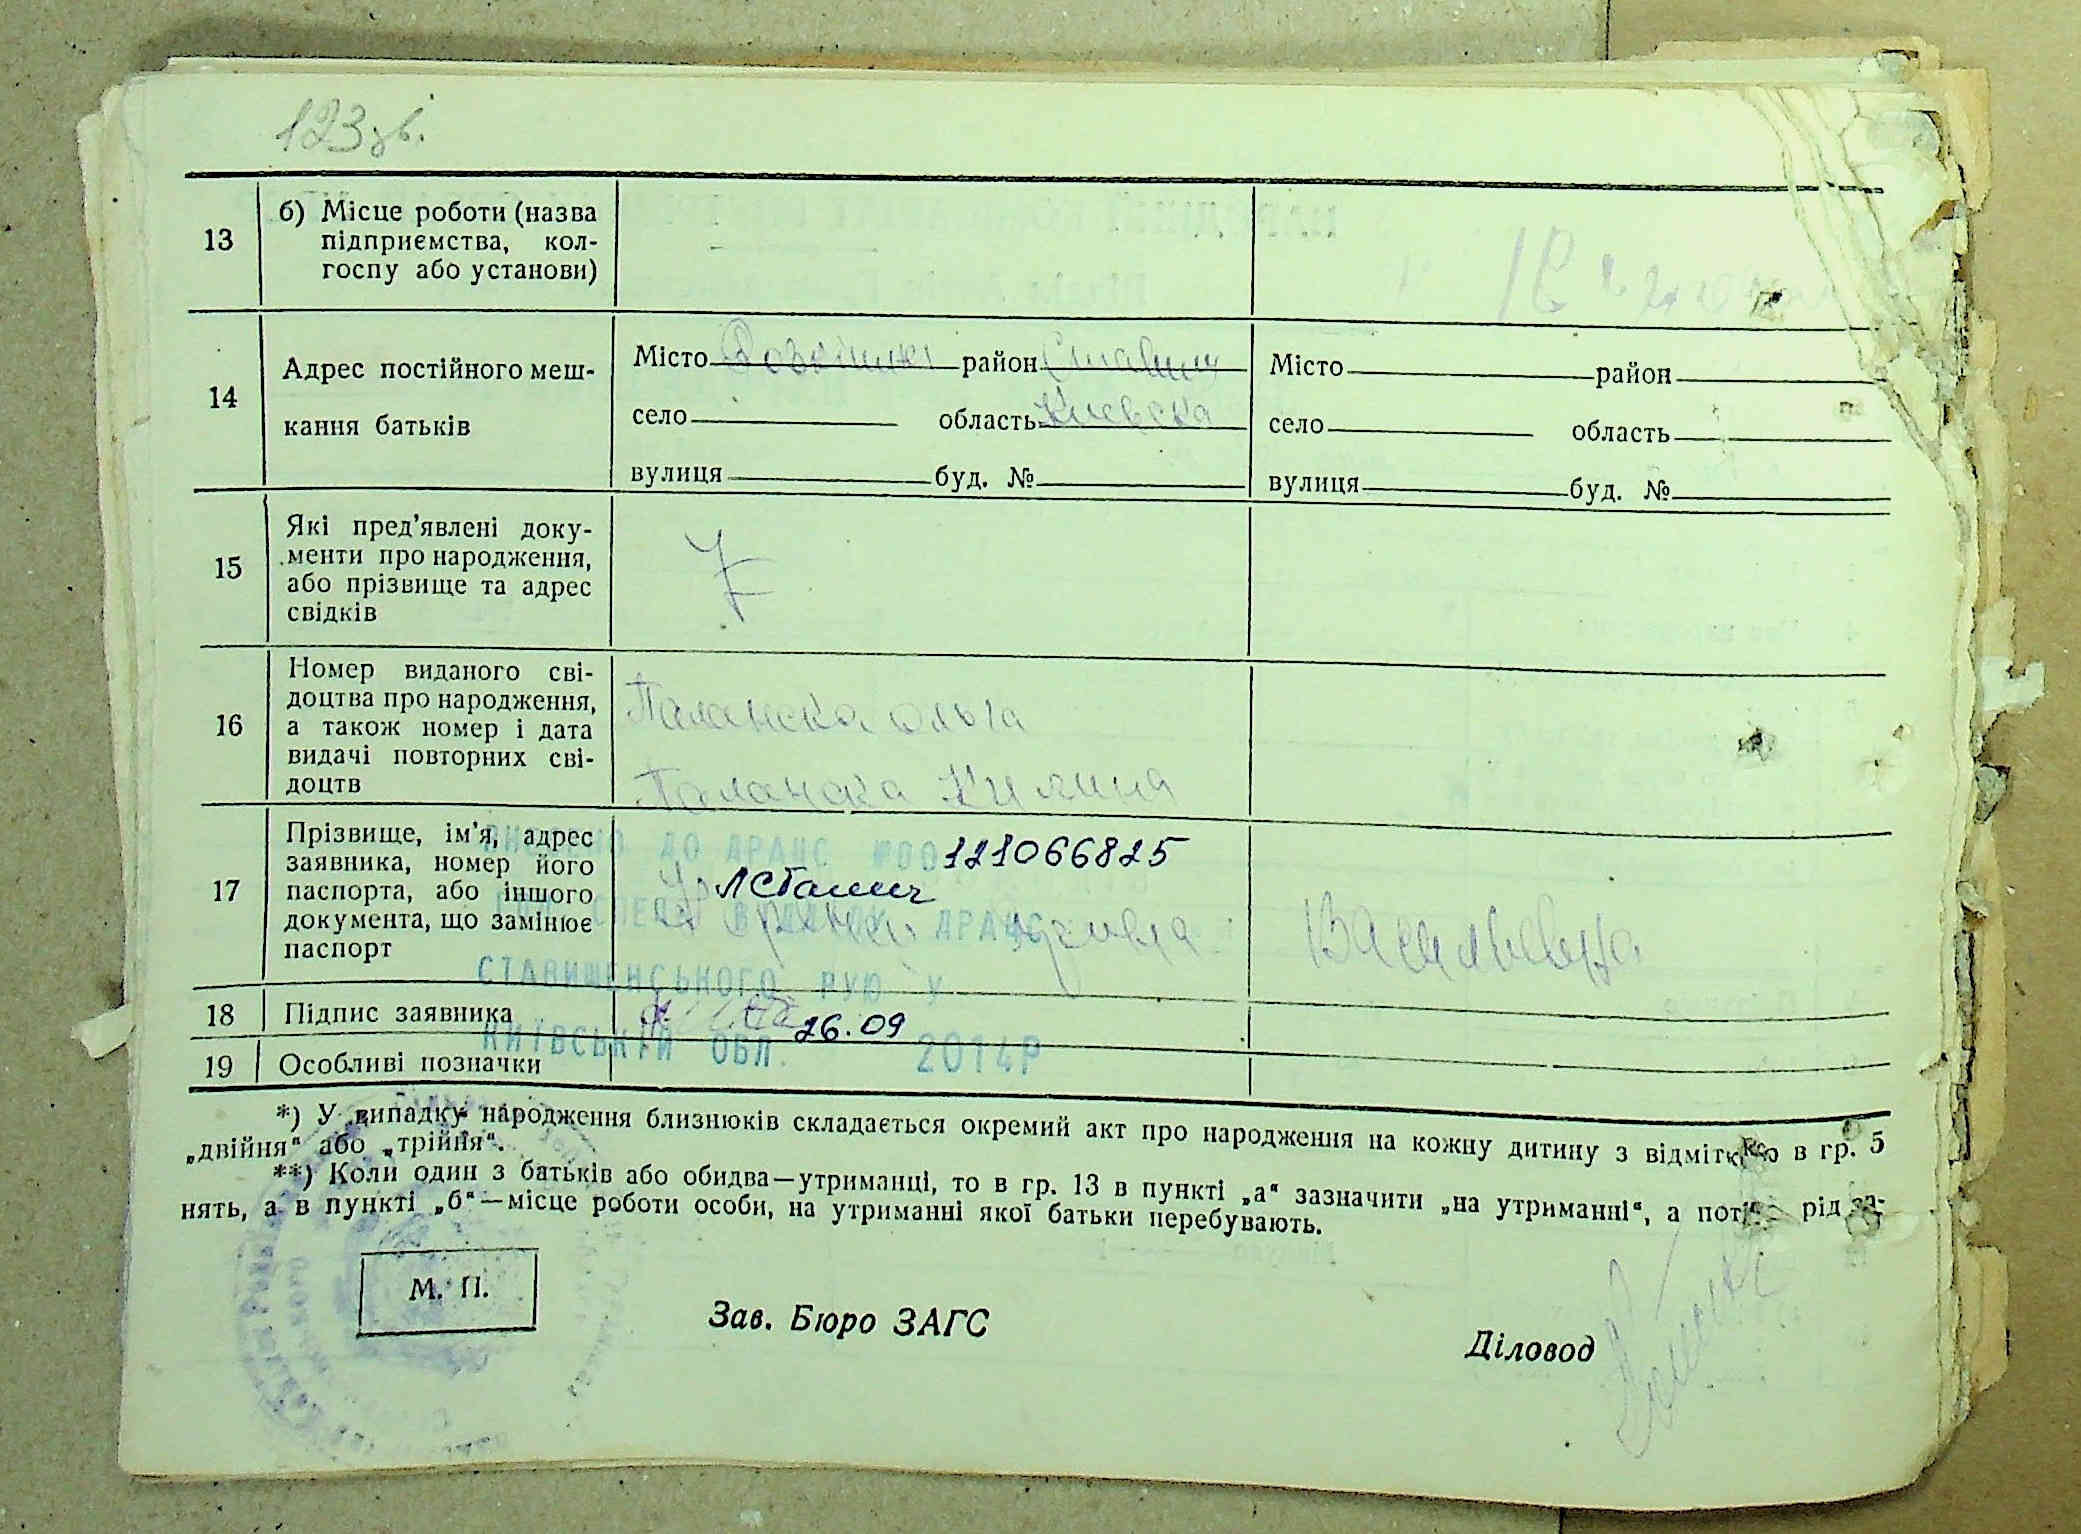 123 зв.
13
б) Місце роботи (назва
підприємства, кол-
госпу або установи)
14
Адрес постійного меш-
кання батьків
Місто район Ставищ
село область Киевска
вулиця буд. №
Місто район
село область
вулиця буд. №
15
Які пред'явлені доку-
менти про народження,
або прізвище та адрес
свідків
16
Номер виданого сві-
доцтва про народження,
а також номер і дата
видачі повторних сві-
доцтв
Паланска Ольга
Паланска Килина
17
Прізвище, ім'я, адрес
заявника, номер його
паспорта, або іншого
документа, що замінює
паспорт
ВНЕСЕНО ДО ДРАЦС №00121066825
ВІДДІЛУ ДРАЦС
Васильевна
СТАВИЩЕНСЬКОГО РУЮ У
18
Підпис заявника
26.09
КИЇВСЬКІЙ ОБЛ. 2014Р
19
Особливі позначки
*) У випадку народження близнюків складається окремий акт про народження на кожну дитину з відміткою в гр. 5
„двійня“ або „трійня“.
**) Коли один з батьків або обидва—утриманці, то в гр. 13 в пункті „а“ зазначити „на утриманні“, а потім рід за-
нять, а в пункті „б“—місце роботи особи, на утриманні якої батьки перебувають.
М. П.
Зав. Бюро ЗАГС
Діловод